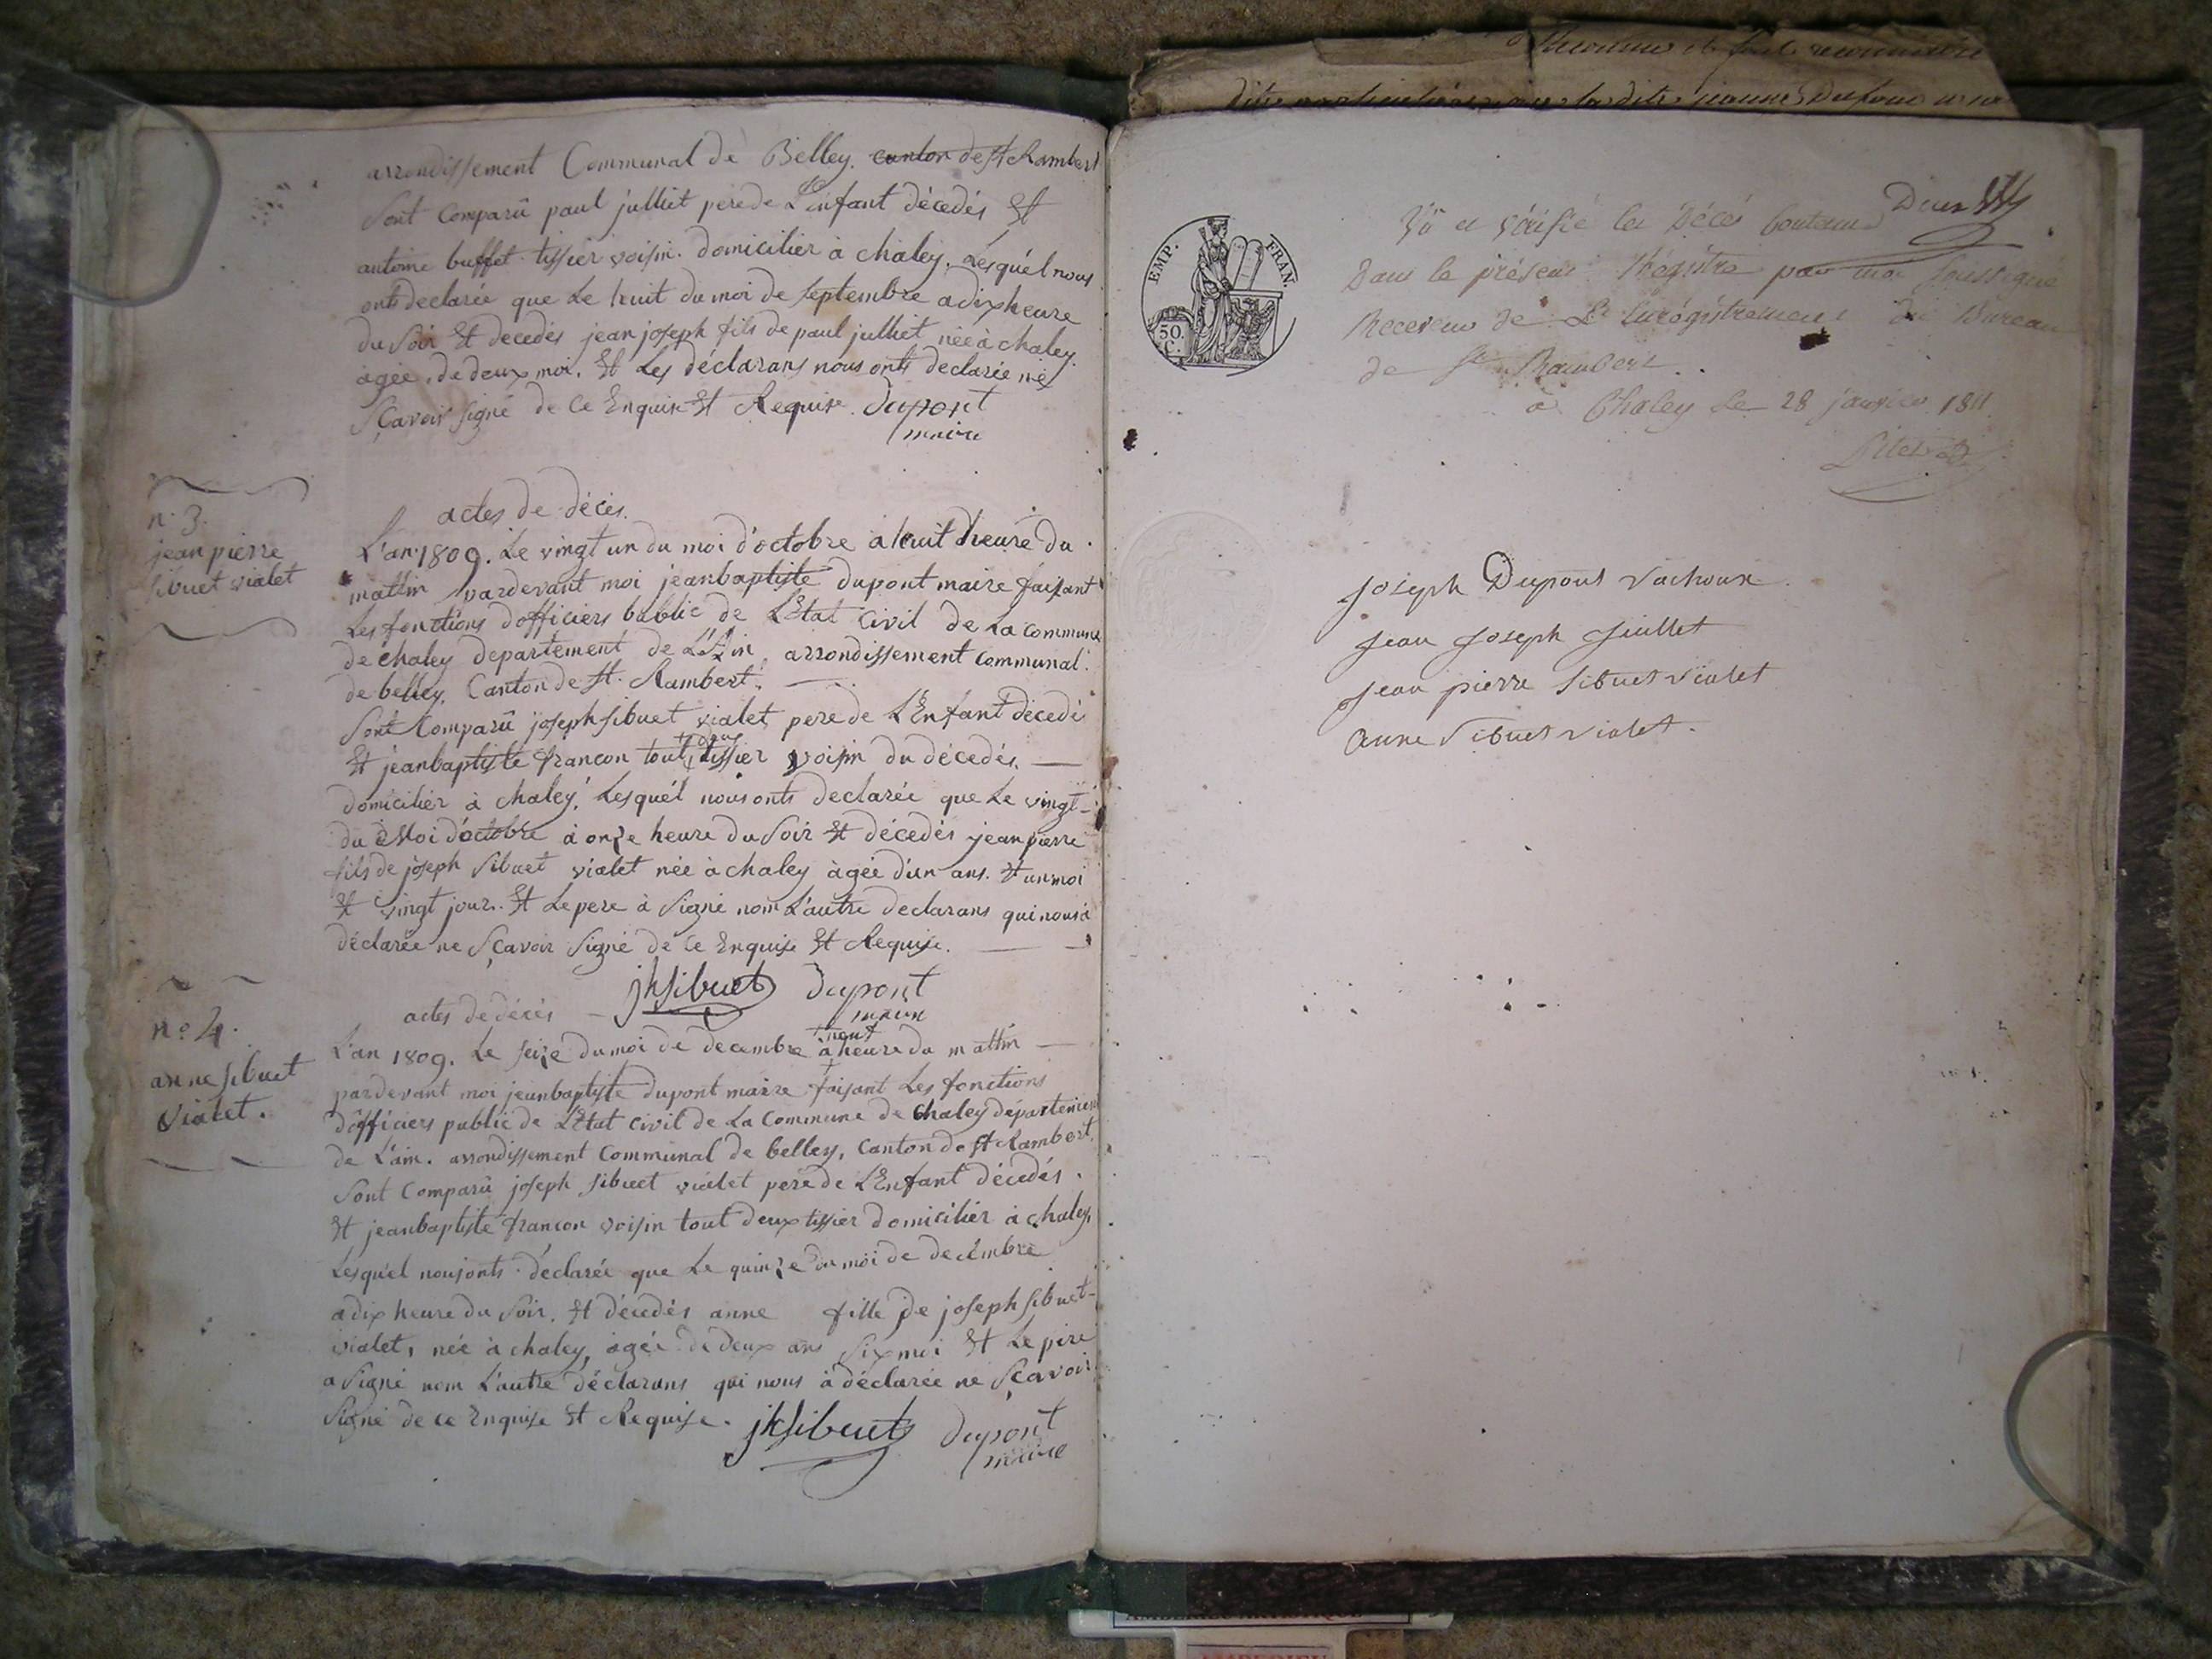 arrondissement Communal de Belley. canton de st Rambert
sont Comparû paul julliet pere de L'enfant décedés Et
antoine buffet tissier voisin. domicilier à chaley. Lesquél nous
onts declarée que Le huit du moi de septembre a dix heure
du soir Et decedés jean joseph fils de paul julliet née à chaley.
agée de deux moi. Et Les déclarans nous onts declarée ne
sçavoir signé de Ce Enquise Et Requise. dupont
maire
n. 3.
jean pierre
sibuet vialet
actes de décés.
L'an 1809. Le vingt un du moi d'octobre a huit heure du
mattin pardevant moi jeanbaptiste dupont maire faisant
Les fonctions dofficiers bublic de L'Etat Civil de La Commune
de chaley departement de L'Ain arrondissement Communal.
de belley. Canton de st. Rambert.
sont Comparû joseph sibuet vialet pere de L'Enfant décedés
Et jeanbaptiste francon tout deux tissier voisin du décedés.
domicilier à chaley. Lesquél nous onts declarée que Le vingt
du Moi d'octobre à onze heure du soir Et décedés jean pierre
fils de joseph sibuet vialet née à chaley àgée d'un ans. Et un moi
Et vingt jour. Et Le pere à signé nom L'autre declarans qui nous à
déclarée ne sçavoir signé de Ce Enquise Et Requise.
jh sibuet dupont
maire
n.o 4.
anne sibuet
vialet.
actes de décés
L'an 1809. Le seize du moi de decembre à neuf heure du mattin
pardevant moi jeanbaptiste dupont maire faisant Les fonctions
dofficiers public de L'Etat civil de La Commune de chaley département
de L'ain. arrondissement Communal de belley, Canton de st Rambert.
sont Comparû joseph sibuet vialet pere de L'Enfant décedés.
Et jeanbaptiste francon voisin tout deux tissier domicilier à chaley.
Lesquel nous onts déclarée que Le quinze du moi de decembre
a dix heure du soir. Et décedés anne fille de joseph sibuet
vialet, née à chaley, agée de deux ans six moi Et Le pere
a signé nom L'autre déclarans qui nous à déclarée ne sçavoir
signé de ce Enquise Et Requise. jh sibuet dupont
maire
EMP. FRAN.
50 C.
Deux
Vû et vérifié les Décés contenus
Dans le présent Régistre par moi soussigné
Receveur de L'Enrégistrement du Bureau
de St Rambert.
à Chaley le 28 janvier 1811.
joseph Dupont vachoux
jean joseph juillet
jean pierre sibuet vialet
anne sibuet vialet.